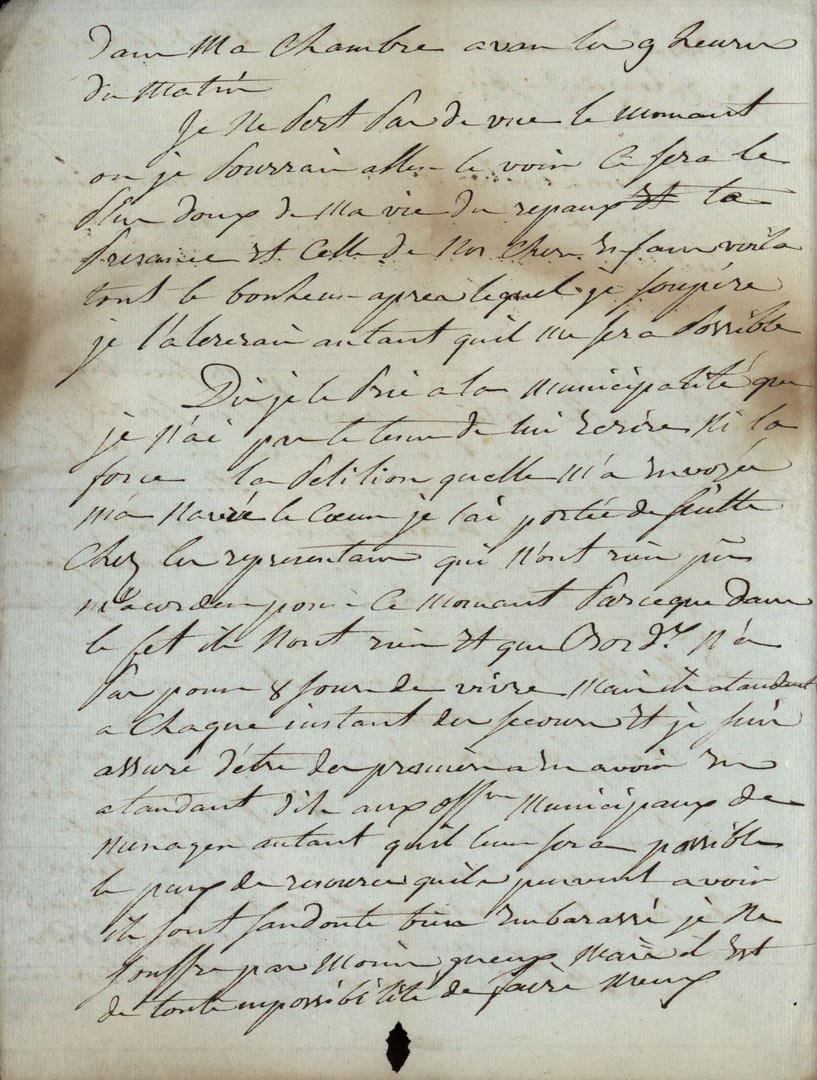 dans Ma Chambre avan les 9 heures
du Matin
Je Ne Pert Pas de vue le moment
ou je Pourrais aller te voir Ce sera le
Plus doux de Ma vie du repaux Et ta
Presance Et Celle de Nos Chers Enfans voila
tout le bonheur apres lequel je soupire
je l'alererai autant quil me sera Possible
Dis je te Prie a la Municipalité que
je N'ai pu le tems de lui Ecrire Ni la
force la Petition quelle M'a Envoyée
m'a Navré le Cœur je l'ai portée de suitte
Chez les representans qui N'ont rien pus
m'acorder pour Ce Moment Parceque dans
le fet ils Nont rien Et que Bord.x N'a
Pas pour 8 Jours de vivre Mais ils atandent
a Chaque instant des secours Et je suis
assuré d'être des premiers a En avoir En
atandant dis aux off.ers Municipaux de
Menager autant quil leur sera possible
le peux de resources quils peuvent avoir
ils sont sandoute bien Embarassé je Ne
souffre pas Moins queux Mais il Est
de toute impossibilité de faire Mieux